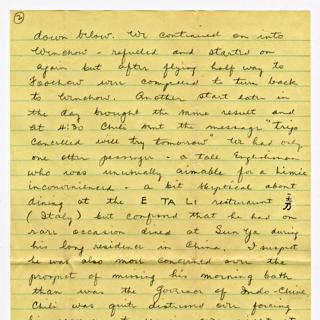 ②
down below. We continued on into
Wenchow - refueled and started on
again but after flying half way to
Foochow were compelled to turn back
to Wenchow. Another start later in
the day brought the same result and
at 4:30 Chili sent the message "Trip
Cancelled will try tomorrow" We had only
one other passenger - a tall Englishman
who was unusually aimable for a Limie
inconvenienced - a bit skeptical about
dining at the E TA LI restaurant
(Italy) but confessed that he had on
rare occasion dined at Sun Ya during
his long residence in China. I suspect
he was also more concerned over the
prospect of missing his morning bath
than was the Governor of Indo-China
Chili was quite distressed over forcing